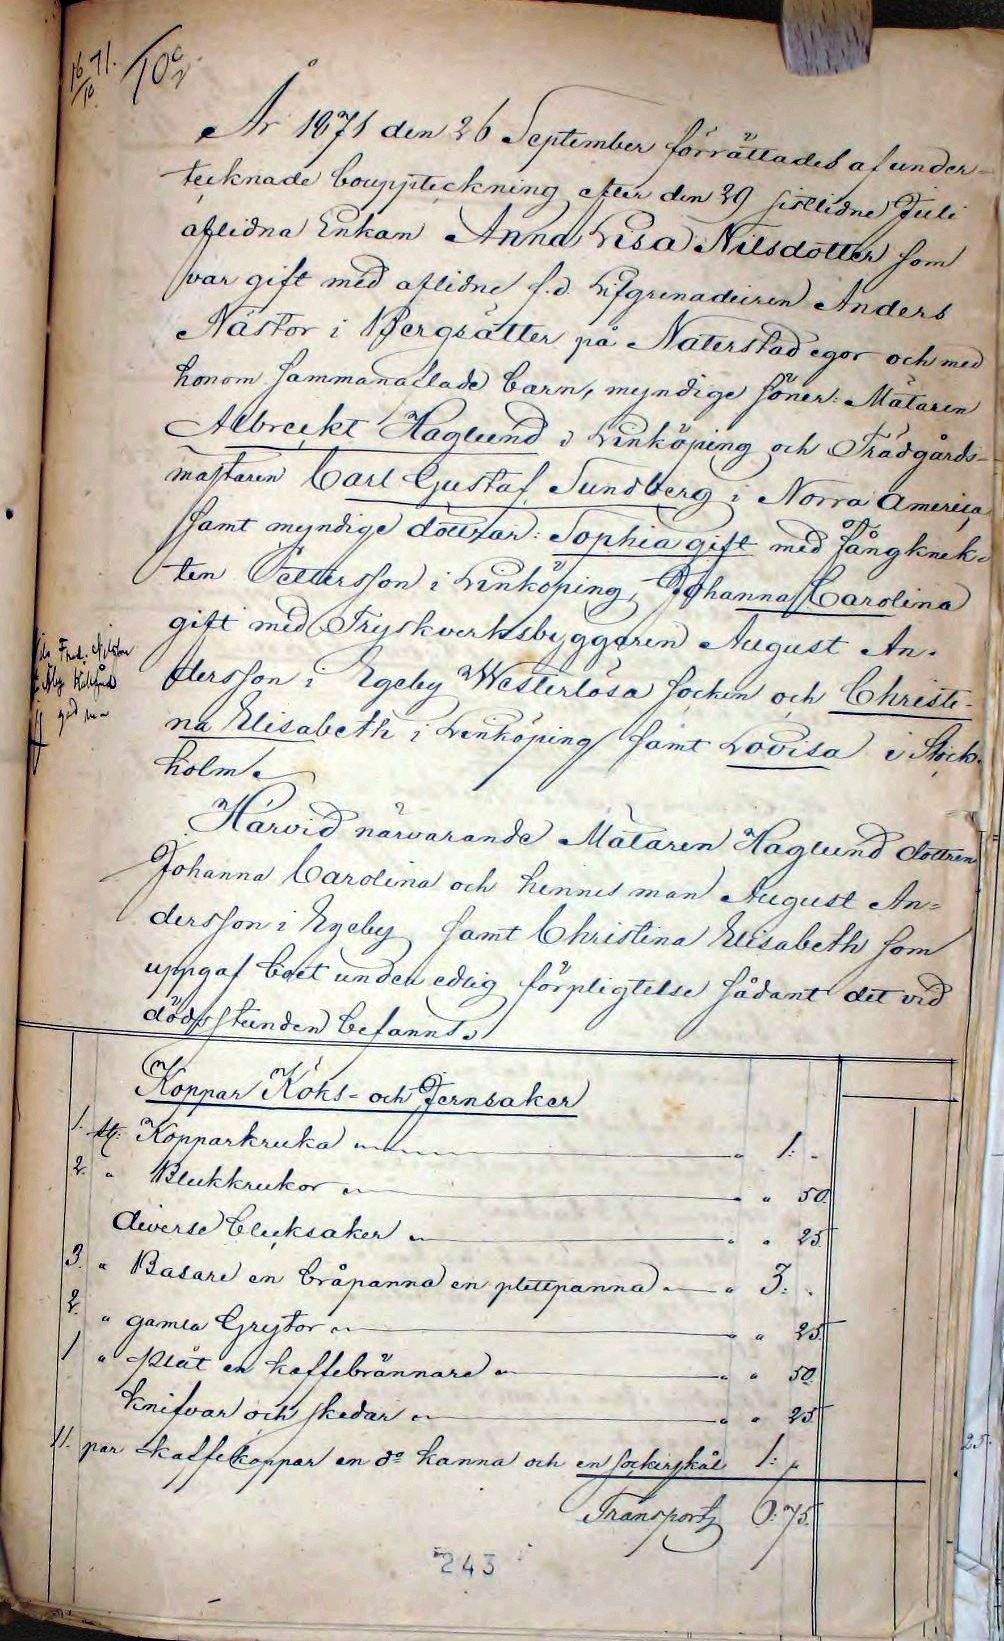 16/10 71.
10 c/2
År 1871 den 26 September förrättades af under-
tecknade bouppteckning efter den 29 sistlidne Juli
aflidna Enkan Anna Lisa Nilsdotter som
var gift med aflidne f.d. Lifgrenadieren Anders
Nästor i Bergsätter på Naterstad egor och med
honom sammanaflade barn, myndige söner: Mätaren
Albreckt Haglund i Linköping och Trädgårds-
mästaren Carl Gustaf Sundberg i Norra America
samt myndige döttrar: Sophia gift med Fångknek-
ten Pettersson i Linköping, Johanna Carolina
gift med Tryskverksbyggaren August An-
dersson i Egeby Westerlösa socken och Christi-
na Elisabeth i Linköping samt Lovisa i Stock-
holm.
Härvid närvarande Mätaren Haglund dottren
Johanna Carolina och hennes man August An-
dersson i Egeby samt Christina Elisabeth som
uppgaf boet under edlig förpligtelse sådant det vid
dödsstunden befanns.
Koppar Köks- och Jernsaker
1. st. Kopparkruka " 1: "
2. " Bleckkrukor " " 50.
diverse blecksaker " " 25.
3. " Basare en bråpanna en plettpanna " 3: "
2. " gamla Grytor " " 25.
1 " plåt en kaffebrännare " " 50.
knifvar och skedar " " 25.
11. par kaffekoppar en do kanna och en sockerskål 1: "
Transport 6: 75.
243
25.